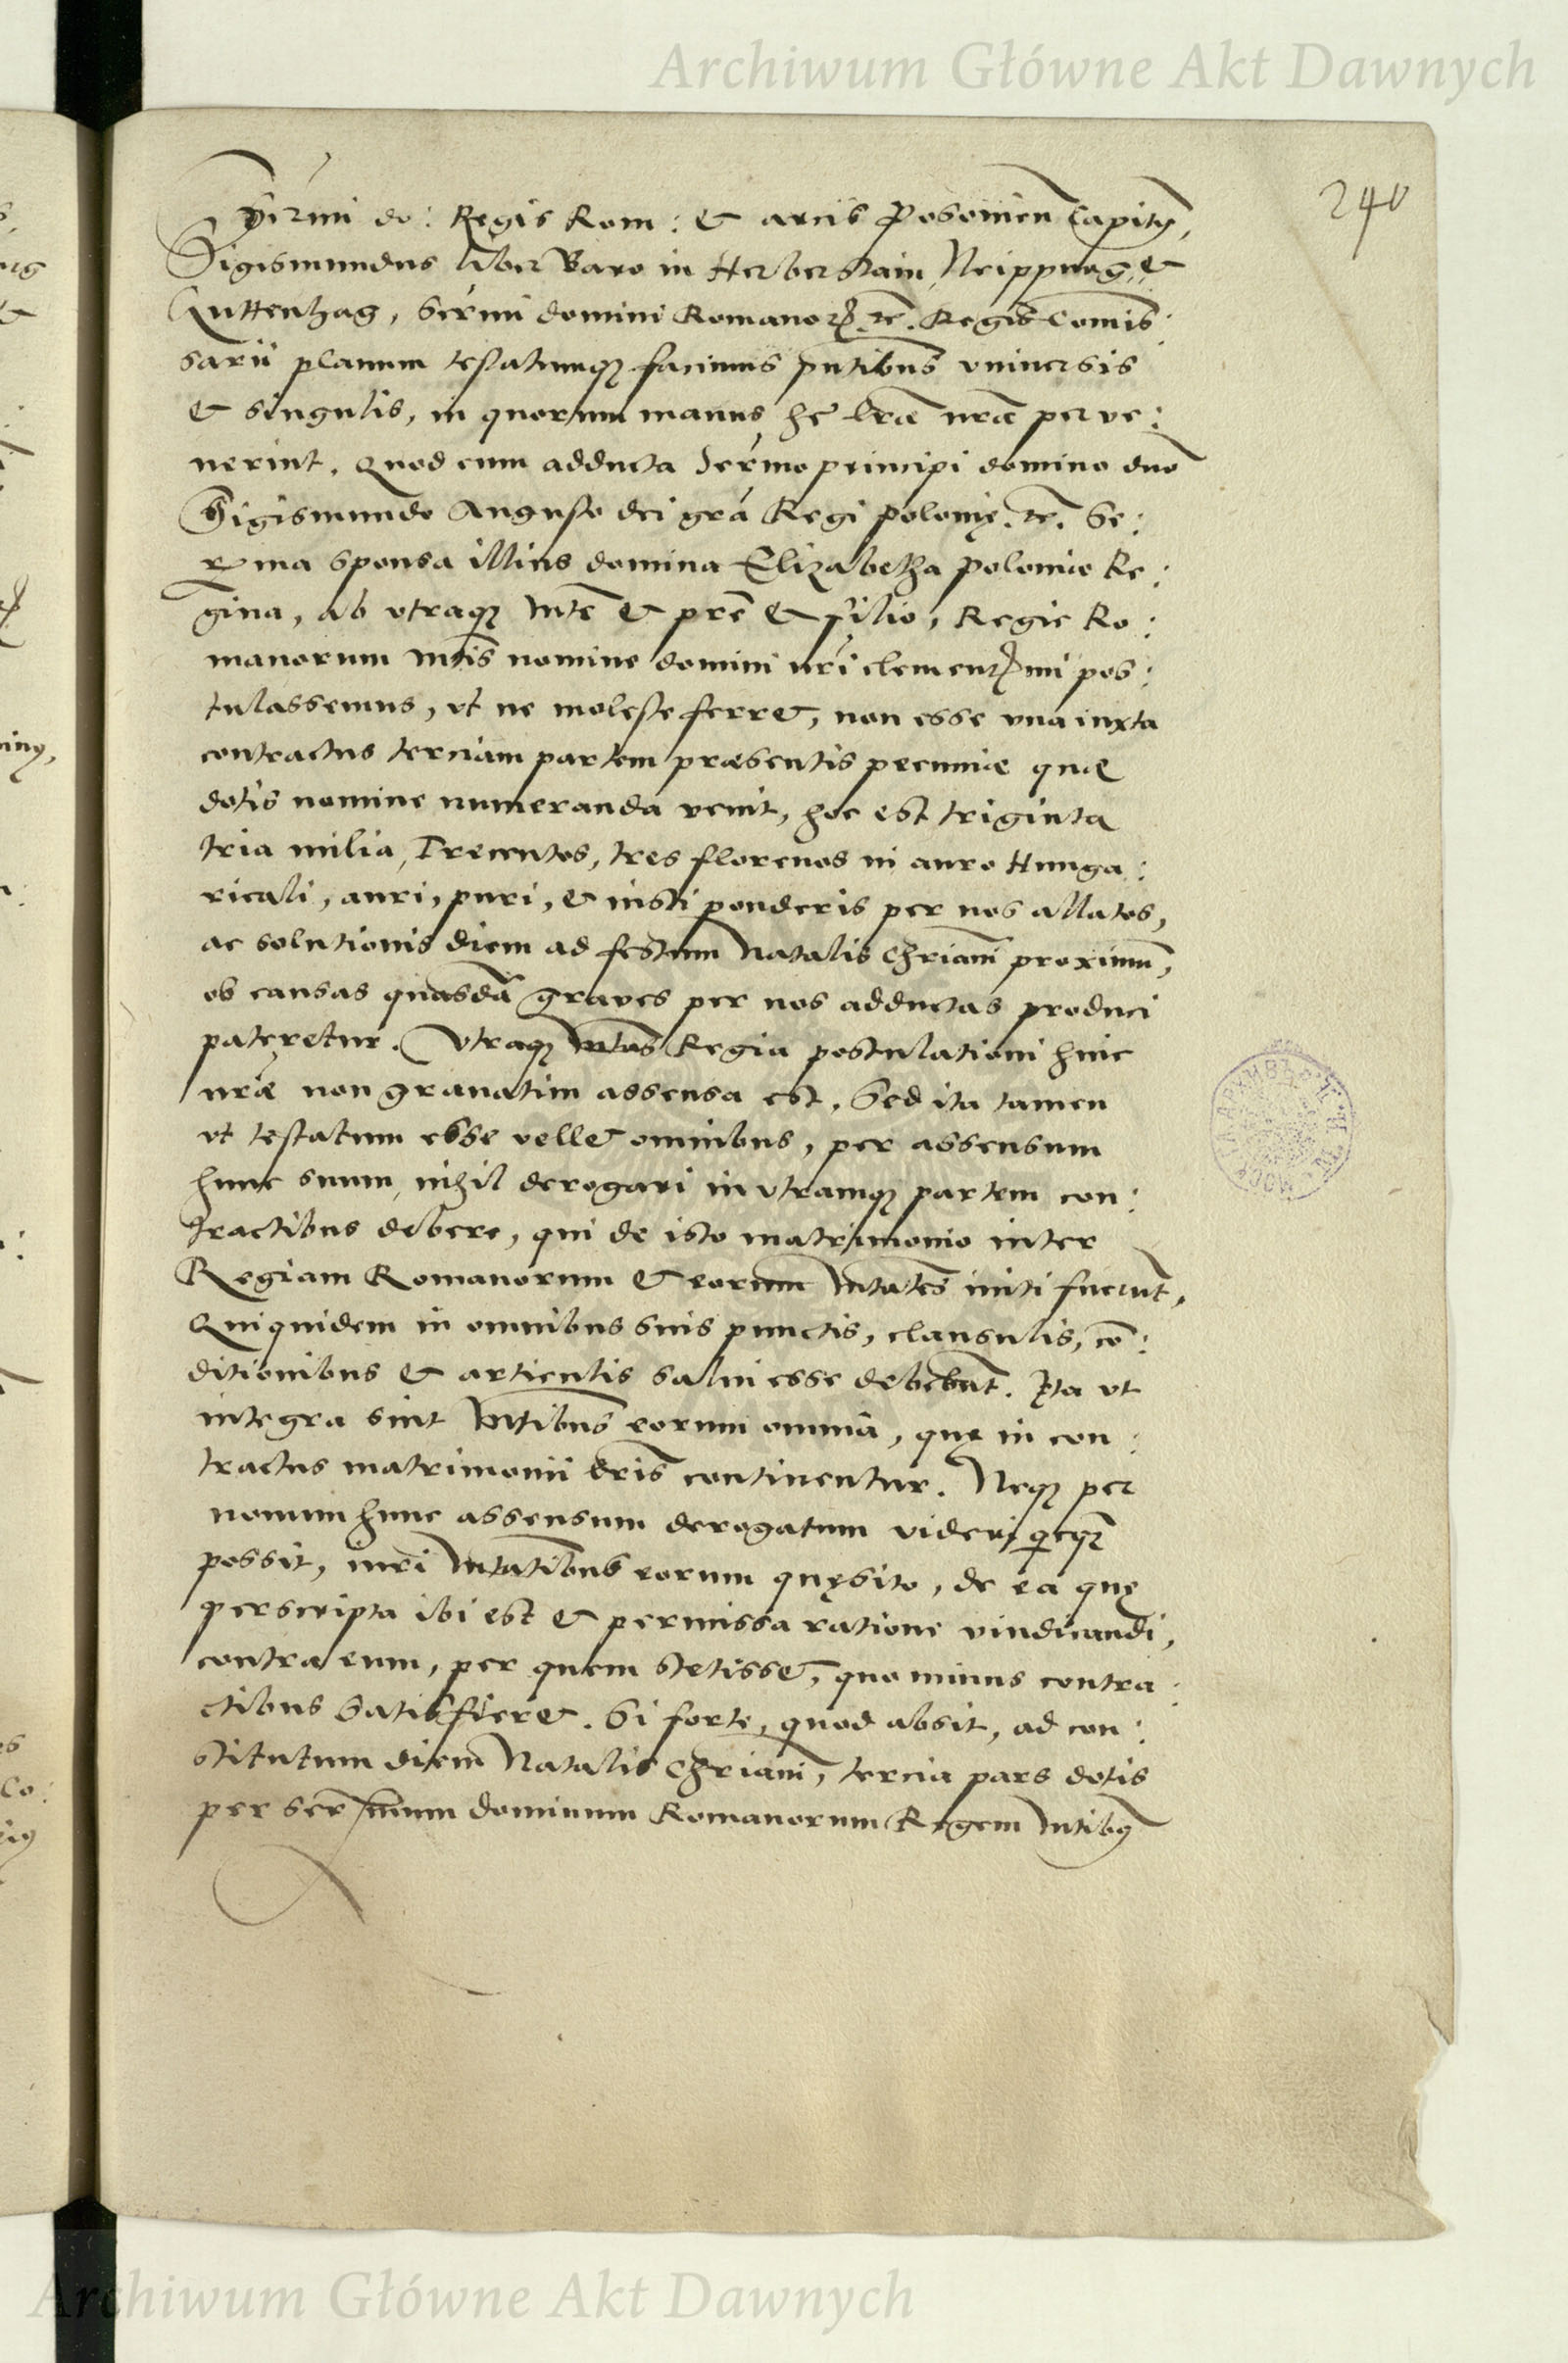 Archiwum Główne Akt Dawnych
240
Sermi do: Regis Rom: & arcis Posonien Capitq,
Sigismundus liber Baro in Herberstain, Neippurg, &
Guttenhag, sermi domini Romanorꝝ. rē. Regis Comis:
sarii planum testatumqꝫ facimus pntibus vniuersis
& singulis, in quorum manus he lrae nrae perve:
nerint. Quod cum adducta Sermo principi domino dno
Sigismundo Augusto dei gra Regi polonię. rē. Se:
rma sponsa illius domina Elizabetha poloniae Re:
gina, ab vtraqꝫ Mte & pre & filio, Regie Ro:
manorum Mtis nomine domini nri clementꝭmi pos:
tulassemus, vt ne moleste ferret, non esse vna iuxta
contractus terciam partem praesentis pecuniae quae
dotis nomine numeranda venit, hoc est triginta
tria milia, Trecentos, tres florenos in auro Hunga:
ricali, auri, puri, & iusti ponderis per nos allatos,
ac solutionis diem ad festum Natalis Chriani proximu,
ob causas quasdā graues per nos adductas produci
pateretur. Vtraqꝫ Mtas Regia postulationi huic
nrae non grauatim assensa est. Sed ita tamen
vt testatum esse vellet omnibus, per assensum
hunc suum, nihil derogari in vtramqꝫ partem con:
tractibus debere, qui de isto matrimonio inter
Regiam Romanorum & eorum Mtates initi fuerunt,
Quiquidem in omnibus suis punctis, clausulis, cō:
ditionibus & articulis salui esse debebunt. Ita vt
integra sint Mtibus eorum omnia, quę in con:
tractus matrimonii lris continentur. Neqꝫ per
nouum hunc assensum derogatum videri qicqꝫ
possit, iuri Mtatibus eorum quęsito, de ea quę
perscripta ibi est & permissa ratione vindicandi,
contra eum, per quem stetisset, quo minus contra:
ctibus satisfieret. Si forte, quod absit, ad con:
stitutum diem Natalis Chriani, tercia pars dotis
per sermum dominum Romanorum Regem Mtibꝫ
Archiwum Główne Akt Dawnych